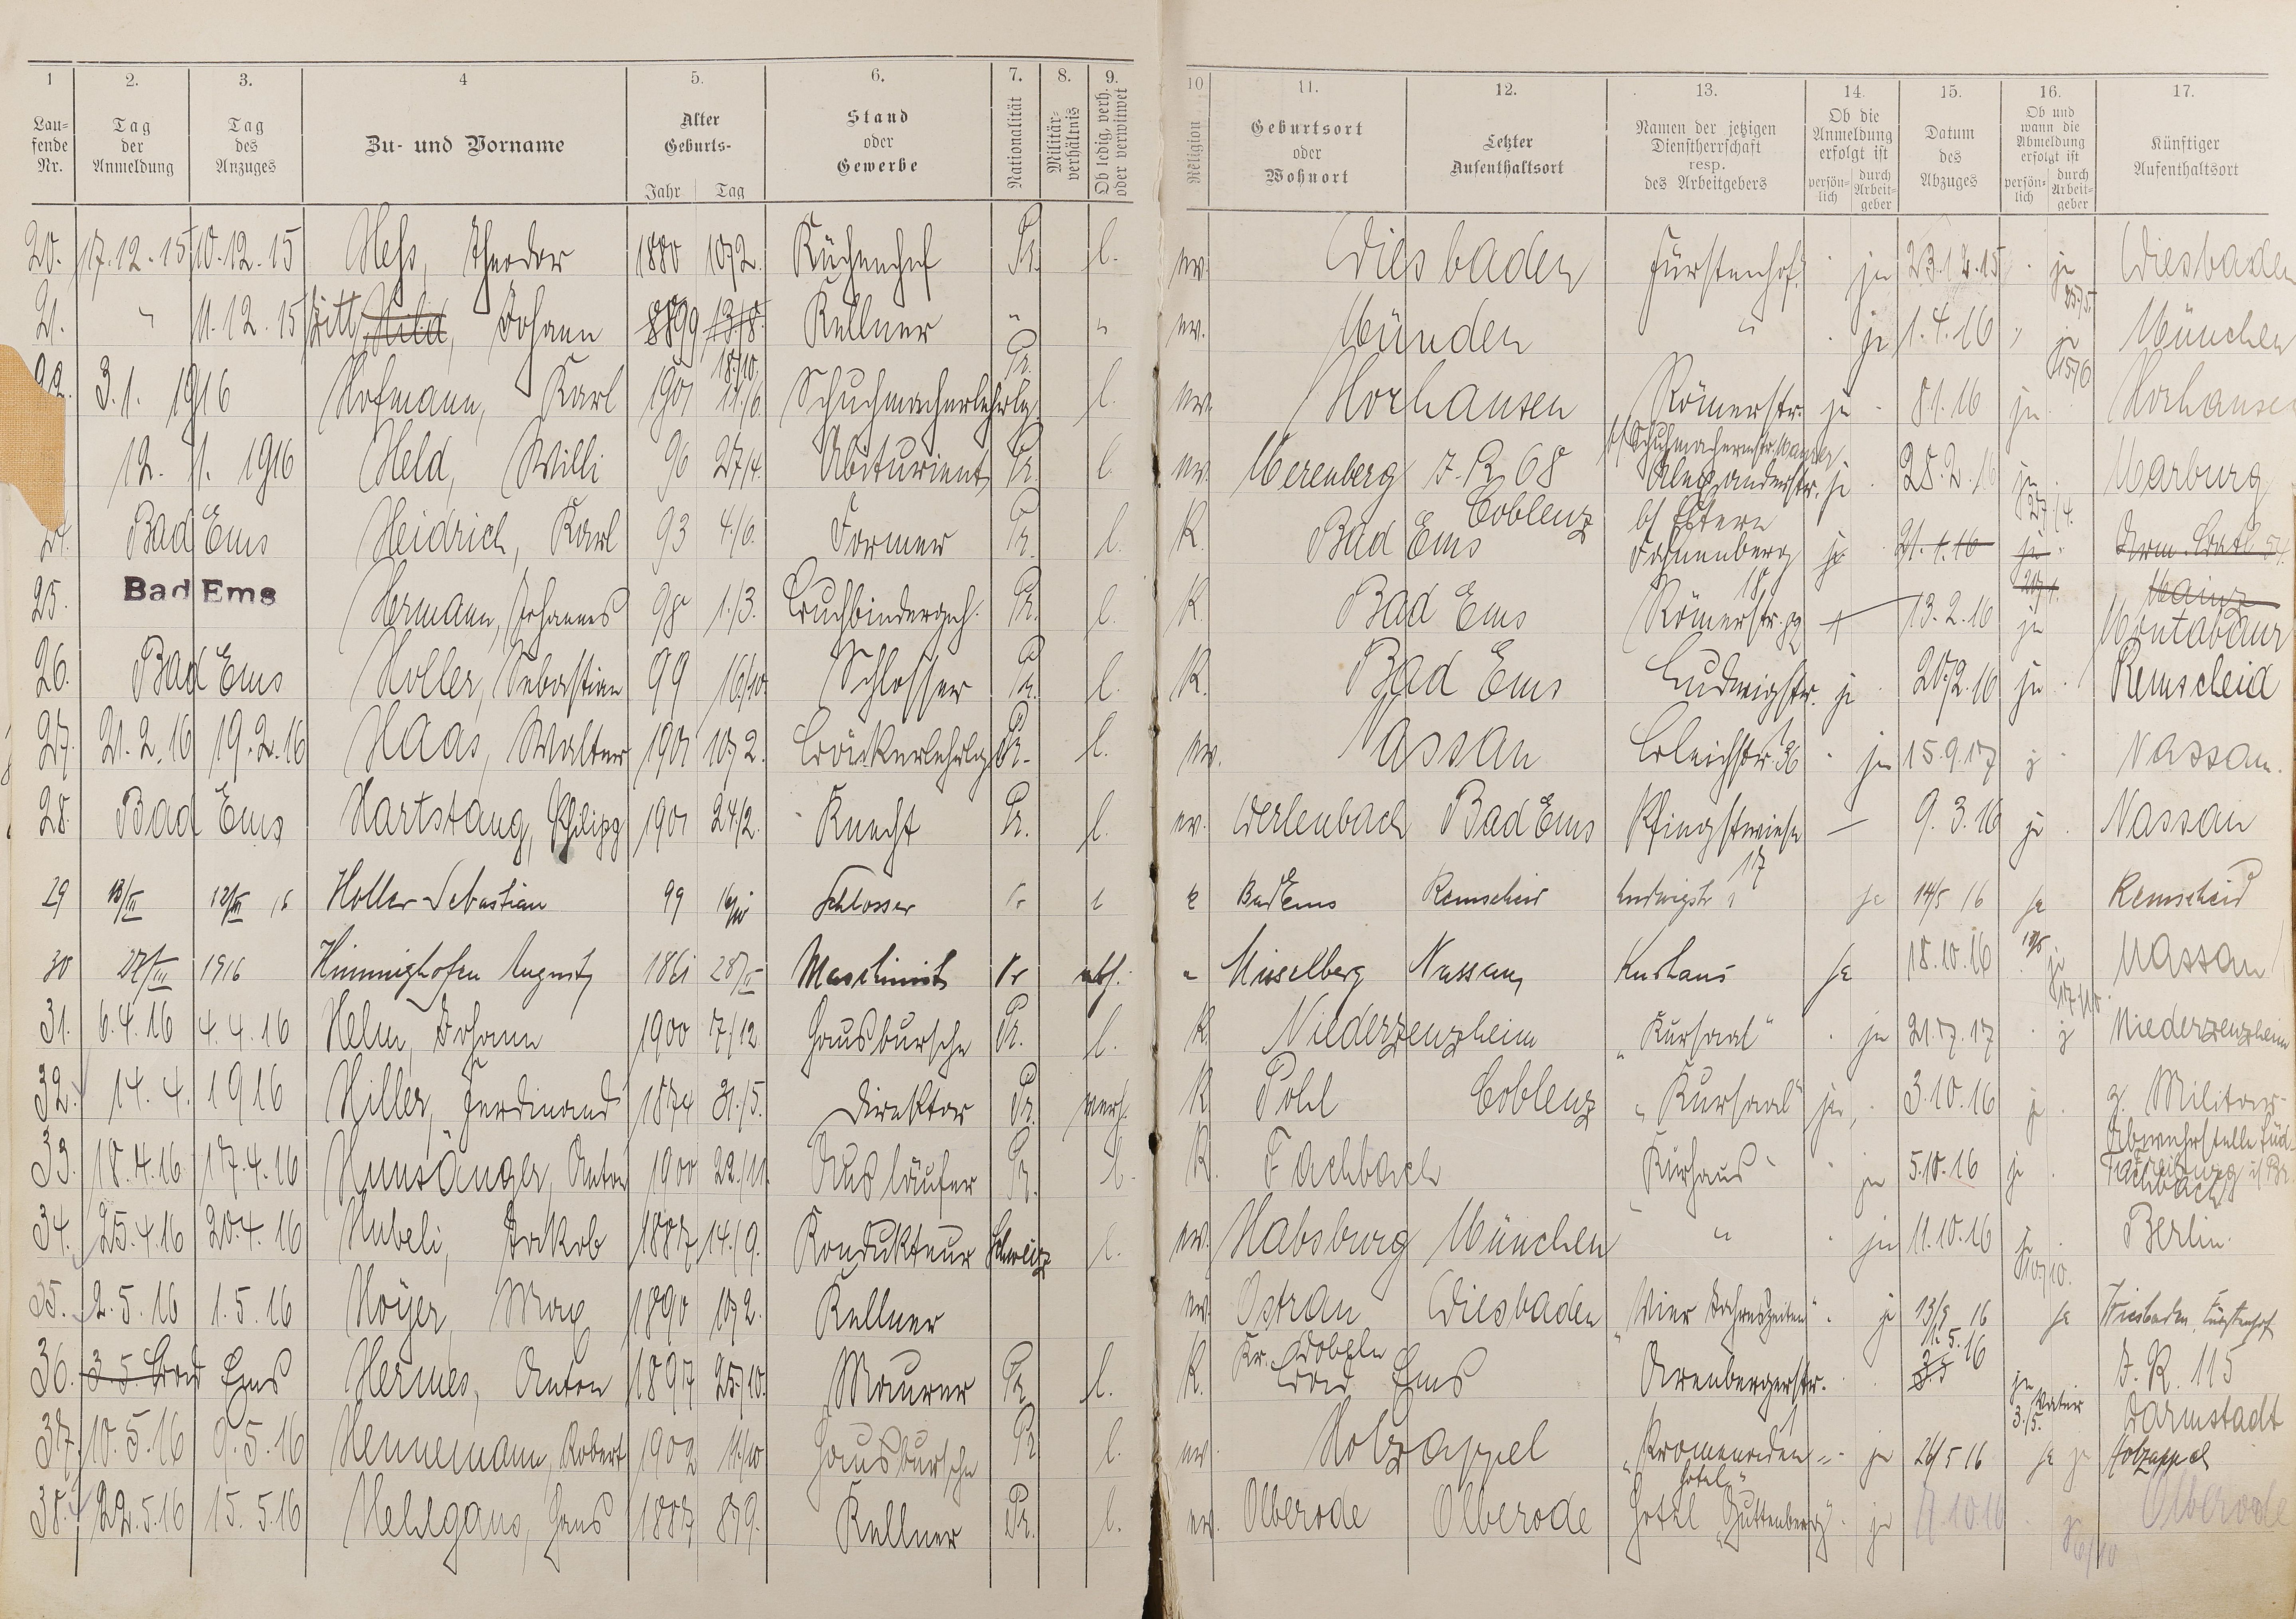 1 2. 3. 4 5. 6. 7. 8. 9. 10 11. 12. 13. 14. 15. 16. 17.
Lau- fende Nr. Tag der Anmeldung Tag des Anzuges Zu- und Vorname Alter Geburts- Jahr Tag Stand oder Gewerbe Nationalität Militär- verhältnis Ob ledig, verh. oder verwitwet Religion Geburtsort oder Wohnort Letzter Aufenthaltsort Namen der jetzigen Dienstherrschaft resp. des Arbeitgebers Ob die Anmeldung erfolgt ist persön- lich durch Arbeit- geber Datum des Abzuges Ob und wann die Abmeldung erfolgt ist persön- lich durch Arbeit- geber Künftiger Aufenthaltsort
20. 17.12.15 10.12.15 Hess, Theodor 1880 10/2. Küchenchef Pr. l. ev. Wiesbaden Fürstenhof. ja 23.12.15 ja Wiesbaden
21. " 11.12.15 Hild, Johann 13/8. 18/10. Kellner " " ev. Münden " ja 1.4.16 ja München
3.1. 1916 Hofmann, Karl 1901 11/6. Schuhmacherlehrlg. Pr. l. ev. Horhausen Römerstr. ja 8.1.16 ja Horhausen
12. 1. 1916 Held, Willi 96 27/4. Abiturient Pr. l. ev. Merenberg J.R. 68 Coblenz Alexanderstr. ja 28.2.16 ja Marburg
24. Bad Ems Heidrich, Karl 93 4/6. Former Pr. l. K. Bad Ems b/ Eltern Fahnenberg ja 21.1.16 ja
25. Bad Ems Hermann, Johannes 98 1./3. Buchbindergeh. Pr. l. K. Bad Ems Römerstr. 13.2.16 ja Mainz Montabaur
26. Bad Ems Holler, Sebastian 99 16/10. Schlosser Pr. l. K. Bad Ems Ludwigstr. ja 20/2.16 ja Remscheid
27. 21.2.16 19.2.16 Haas, Walter 1901 10/2. Bäckerlehrlg. Pr. l. ev. Nassau Bleichstr. 36 ja 15.9.17 j Nassau.
28. Bad Ems Hartstang, Philipp 1901 24/2. Knecht Pr. l. ev. Werlenbach Bad Ems Pfingstwiese — 9.3.16 ja Nassau
29 13/III 12/III 16 Holler Sebastian 99 Schlosser Pr l Bad Ems Remscheid Ludwigstr 17 ja 14/5 16 ja Remscheid
30 27/III 1916 Himmighofen August 1861 28/II Maschinist Pr vbh. " Misselberg Nassau Kurhaus ja 18.10.16 ja 17/10. Nassau
31. 6.4.16 4.4.16 Helm, Johann 1900 17/12 Hausbursche Pr. l. K. Niederzenzheim "Kursaal" ja 21.7.17 j Niederzenzheim
32. 14.4. 1916 Hiller, Ferdinand 1874 31./5. Direktor Pr. verh. K. Pohl Coblenz "Kursaal" ja 3.10.16 j z. Militär- Abwehrstelle Süd- Freiburg i/Br.
33. 18.4.16 17.4.16 Hunsänger, Anton 1900 22./11. Ausläufer Pr. l. K. Fachbach "Kurhaus" ja 5.10.16 ja Fachbach
34. 25.4.16 20.4.16 Hubeli, Jakob 1887 14./9. Kondukteur Schweiz l. ev. Habsburg München " ja 11.10.16 ja 10/10. Berlin.
35. 2.5.16 1.5.16 Höyer, Max 1890 10/2. Kellner ev. Ostrau Kr. Döbeln Wiesbaden "Vier Jahreszeiten" ja 13/9 16 ja Wiesbaden, Fürstenhof
36. 3.5. Bad Ems Hermes, Anton 1897 25/10. Maurer Pr. l. K. Bad Ems Arenbergerstr. 3.5 11.5.16 ja Vater 3./5. J.R. 115 Darmstadt
37. 10.5.16 9.5.16 Hennemann, Robert 1902 11/10 Hausbursche Pr l. ev. Holzappel "Promenaden = Hotel" ja 26/5 16 ja ja Holzappel
38. 22.5.16 15.5.16 Hehlgans, Hans 1887 8/9. Kellner Pr. l. ev. Olberode Olberode Hotel "Guttenberg" ja 7.10.16 Olberode